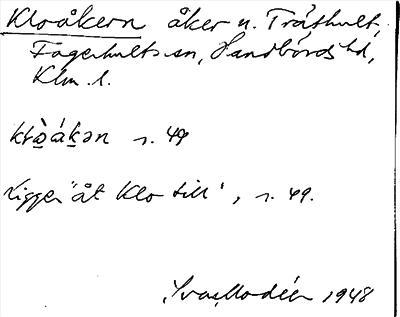 Kloåkern åker u. Träthult,
Fagerhults sn, Handbörds hd,
Klm. l.
s. 49
Ligger "åt Klo till", s. 49.
Ivar Modéer 1948